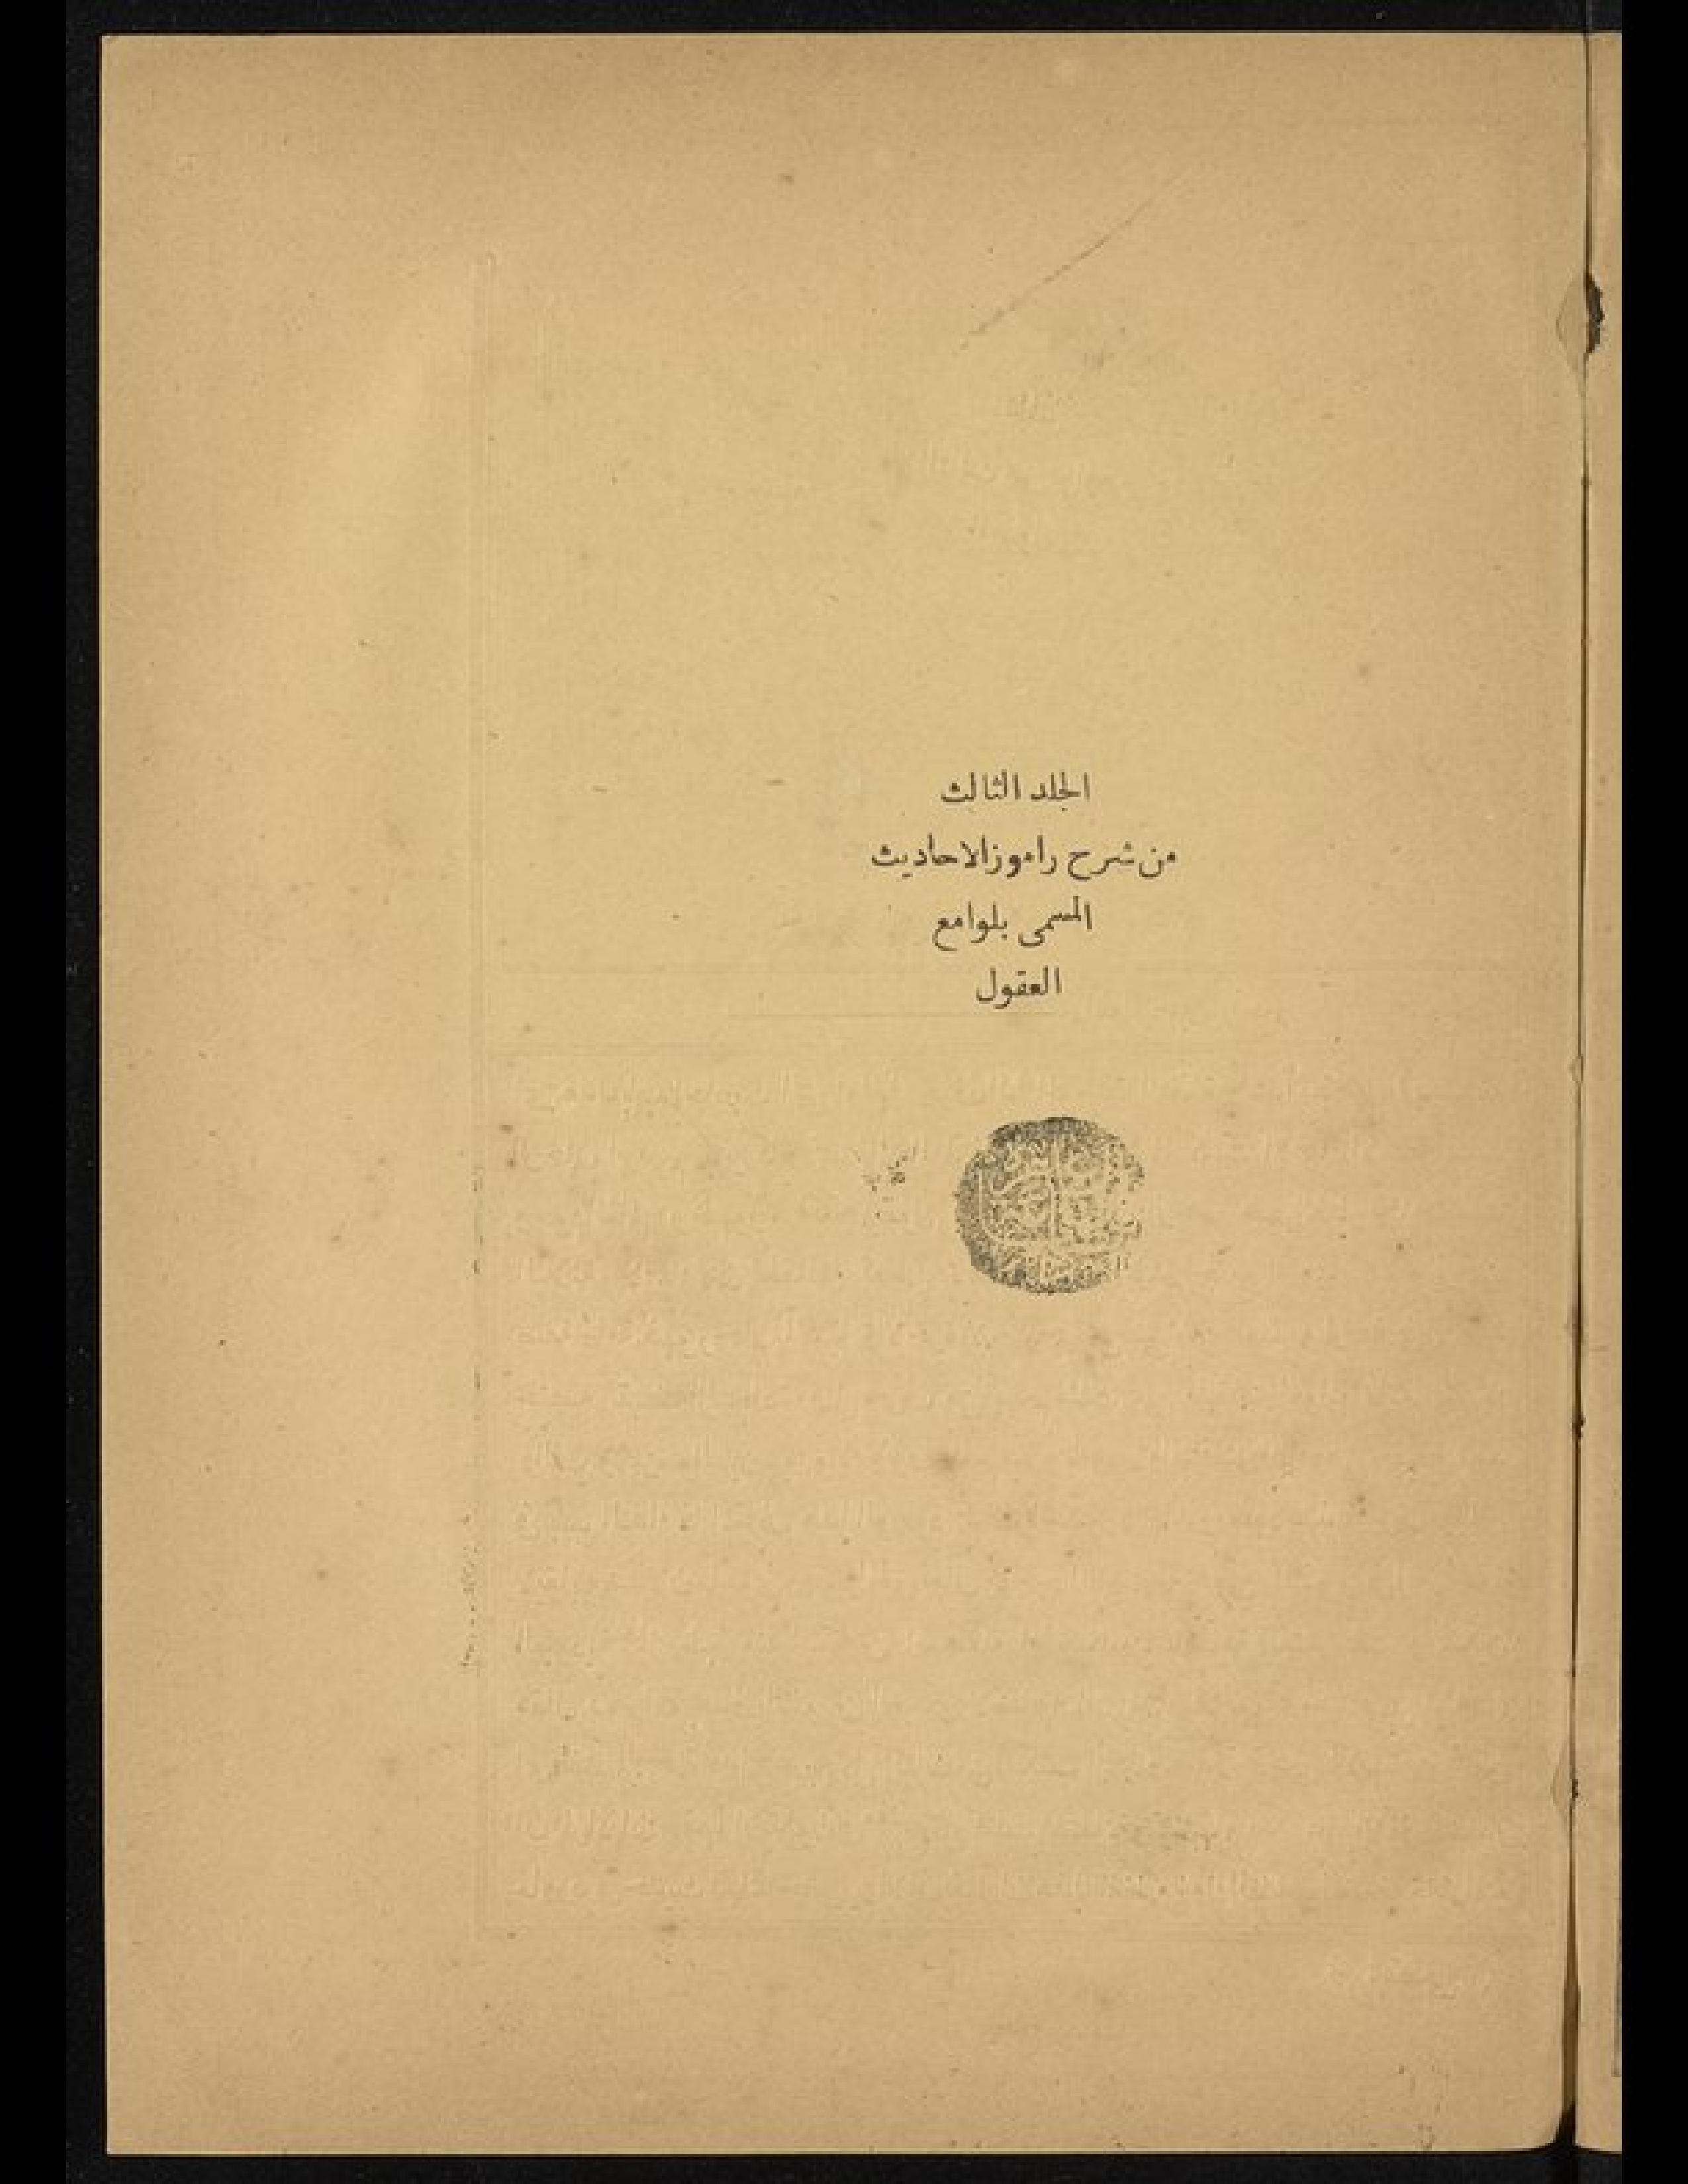 الجلد الثالث
من شرح راموز الاحاديث
المسمى بلوامع
العقول